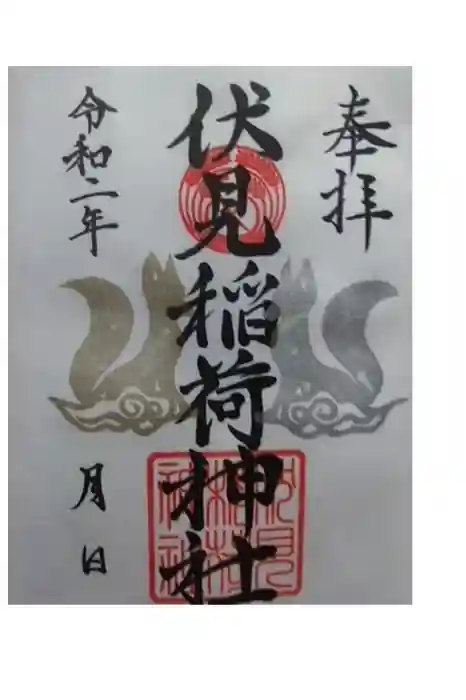 奉拝
伏見稲荷神社
令和二年
月 日